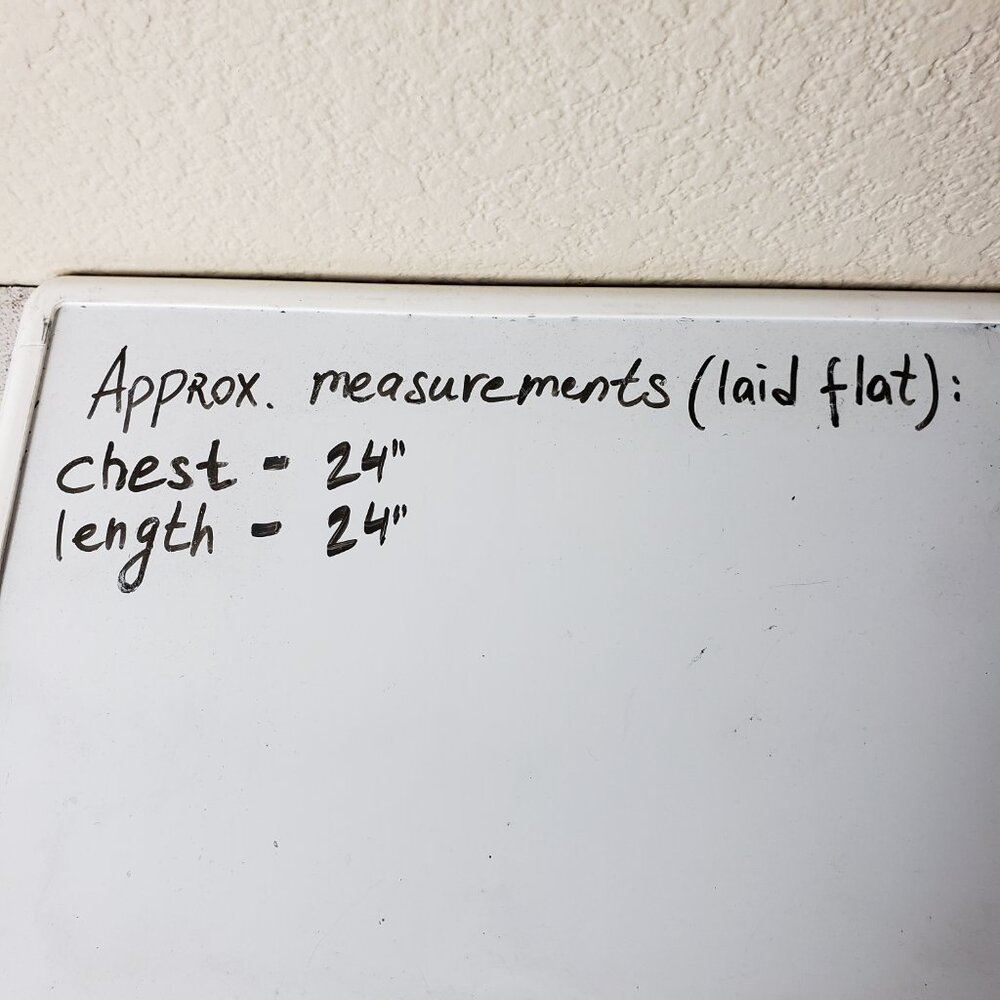 Approx. measurements (laid flat):
chest - 24"
length - 24"